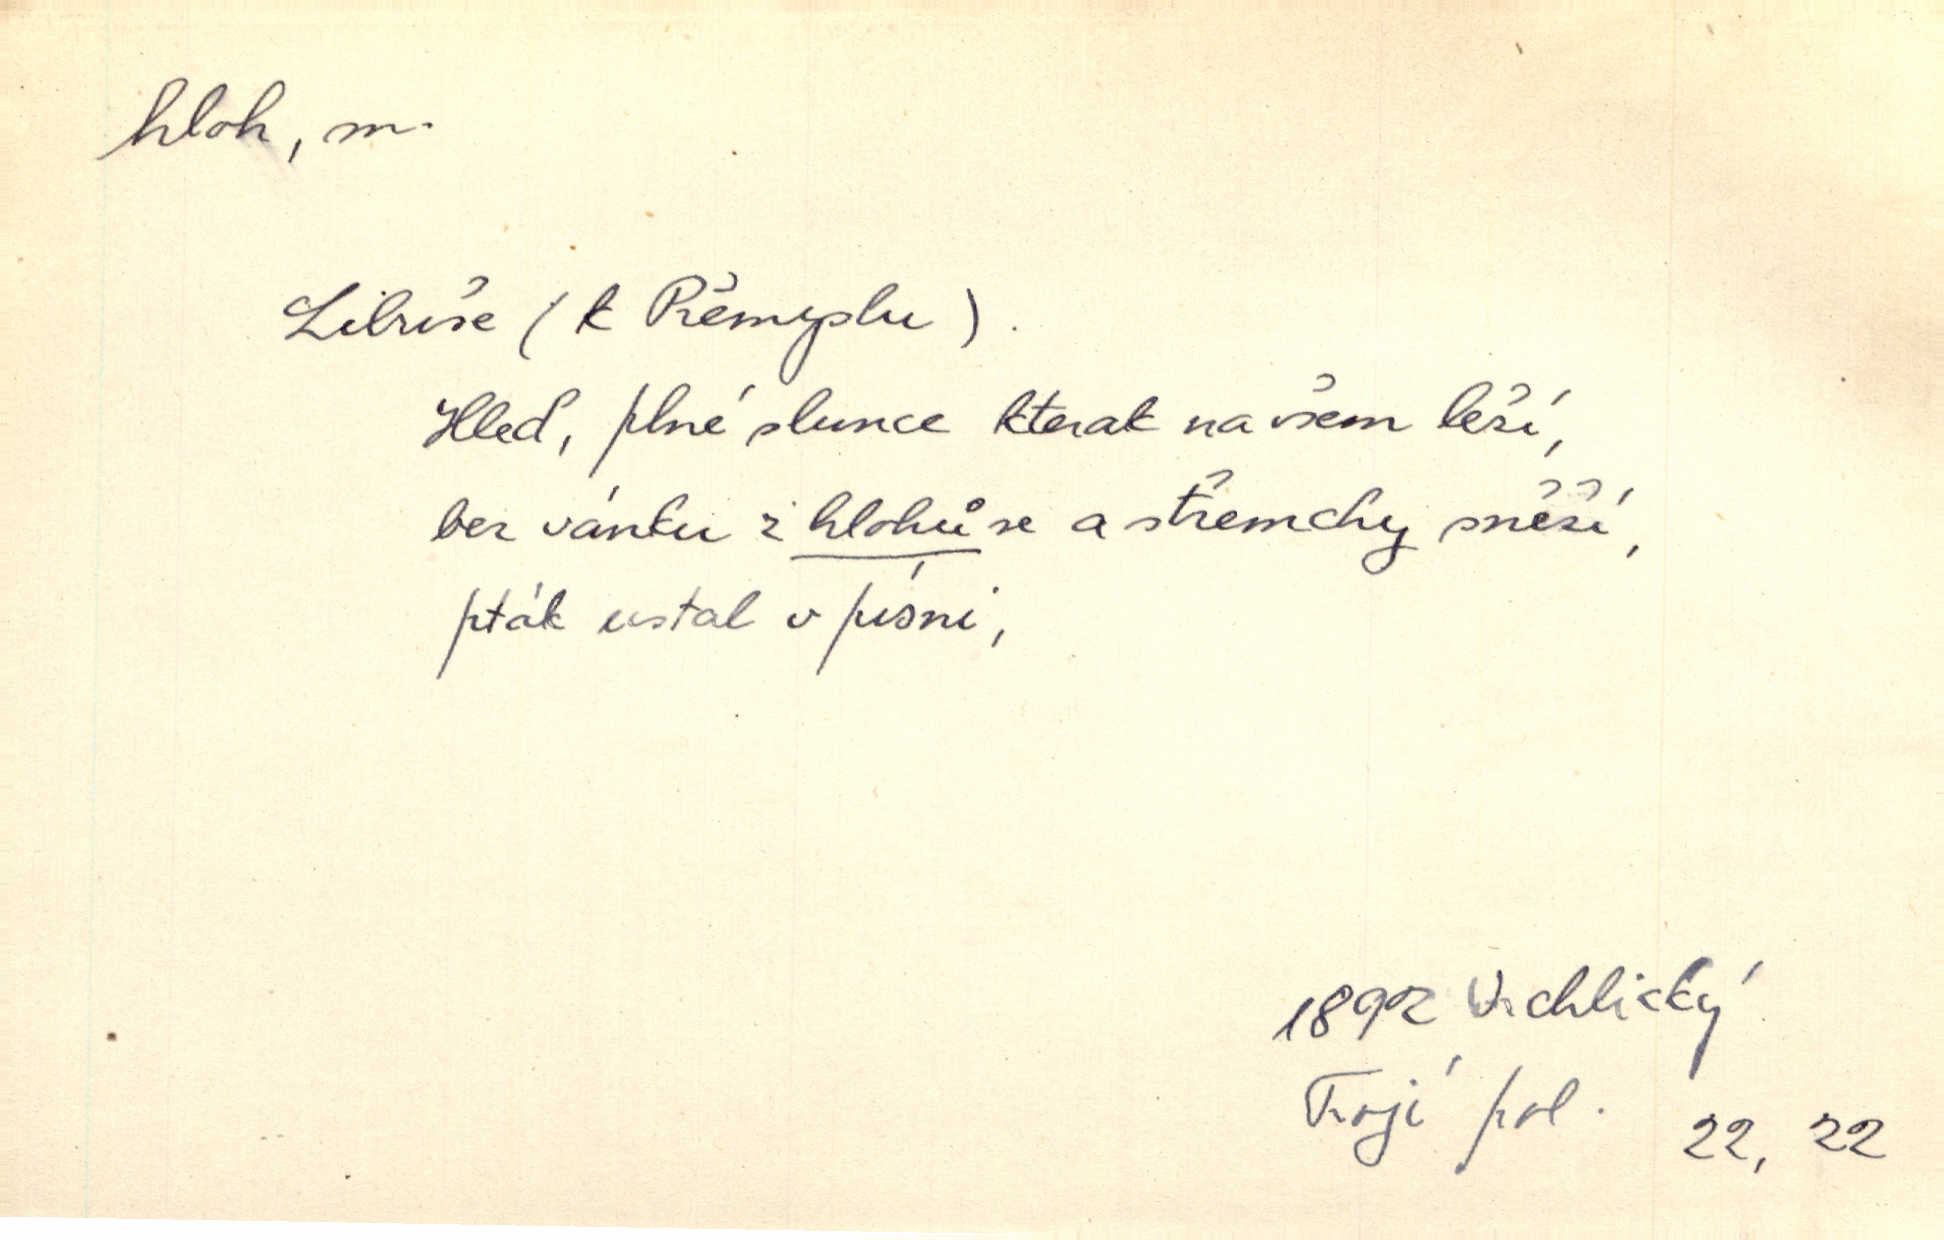 hloh, m.
Libuše (k Přemyslu).
Hleď, plné slunce kterak na všem leží,
bez vánku z hlohů se a střemchy sněží,
pták ustal v písni,
1892 Vrchlický
Trojí pol.
22, 22